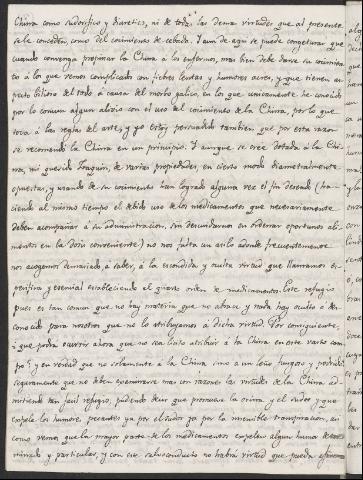 China como sudorifico y diuretico, ni de todas las demas virtudes que al presente
se le conceden, como del cocimiento de cebada. Y aun de aqui se puede congeturar que
cuando convenga propinar la China a los enfermos, mas bien debe darse su cocimien-
to á los que vemos complicados con fiebres lentas y humores acres, y que tienen as-
pecto bilioso del todo á causa del morbo galico, en los que unicamente he conoci-
do por lo comun algun alivio con el uso del cocimiento de la China, por lo que
toca á las reglas del arte, y yo estoy persuadido tambien que por esta razon
se recomendó la China en un principio. Y aunque se cree dotada á la Chi-
na, mi querido Joaquin, de varias propiedades, en cierto modo diametralmente
opuestas, y usando de su cocimiento han logrado alguna vez el fin deseado (ha-
ciendo al mismo tiempo el debido uso de los medicamentos que necesariamente
deben acompañar á su administracion, sin descuidarnos en ordenar oportunos ali-
mentos en la dosis conveniente) no nos falta un asilo adonde frecuentemente
nos acogemos demasiado, á saber, á la escondida y oculta virtud que llamamos es-
pecifica y esencial estableciendo el quarto orden de medicamentos. Este refugio
pues es tan comun que no hay materia que no abrace y nada hay oculto ó des-
conocido para nosotros que no lo atribuyamos á dicha virtud. Por consiguiente,
¿que podrá ocurrir ahora que no sea licito atribuir á la China en este vasto cam-
po? y en verdad que no solamente á la China sino á un leño fungoso y podrido
seguramente que no deben posponerse mas con razones las virtudes de la China ad-
mitiendo tan facil refugio, pudiendo decir que promueve la orina y el sudor y que
expele los humores, pecantes ya por el sudor ya por la insensible transpiracion, asi
como vemos que la mayor parte de los medicamentos expelen algun humor deter-
minado y particular, y con este salvoconducto no habrá virtud que pueda esprimir